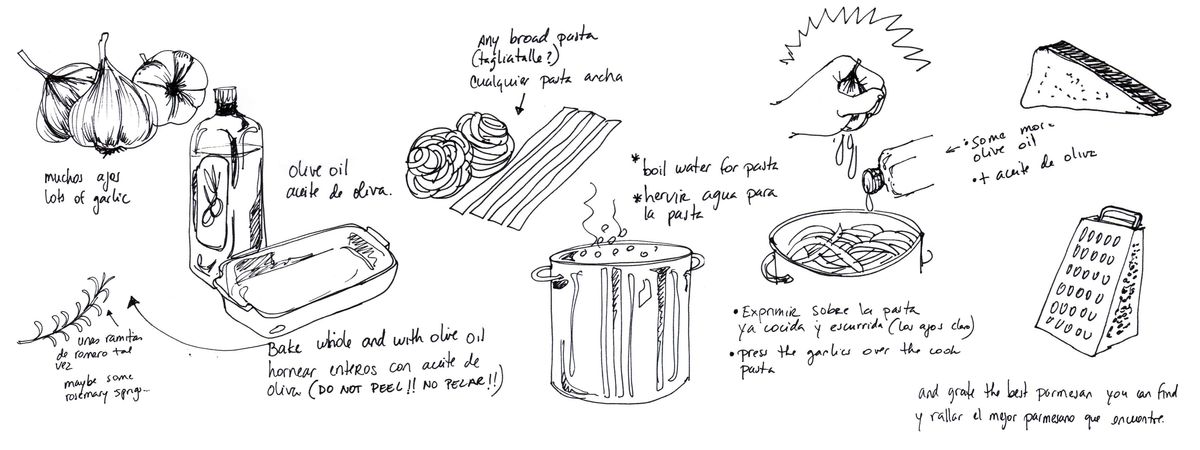 muchos ajos
lots of garlic
olive oil
aceite de oliva.
unas ramitas
de romero tal
vez
maybe some
rosemary sprigs...
Bake whole and with olive oil
hornear enteros con aceite de
oliva (DO NOT PEEL!! NO PELAR!!)
Any broad pasta
(tagliatalle?)
cualquier pasta ancha
* boil water for pasta
* hervir agua para
la pasta
• some more
olive oil
• + aceite de oliva
• Exprimir sobre la pasta
ya cocida y escurrida (los ajos claro)
• press the garlics over the cook
pasta
and grate the best parmesan you can find
y rallar el mejor parmesano que encuentre.